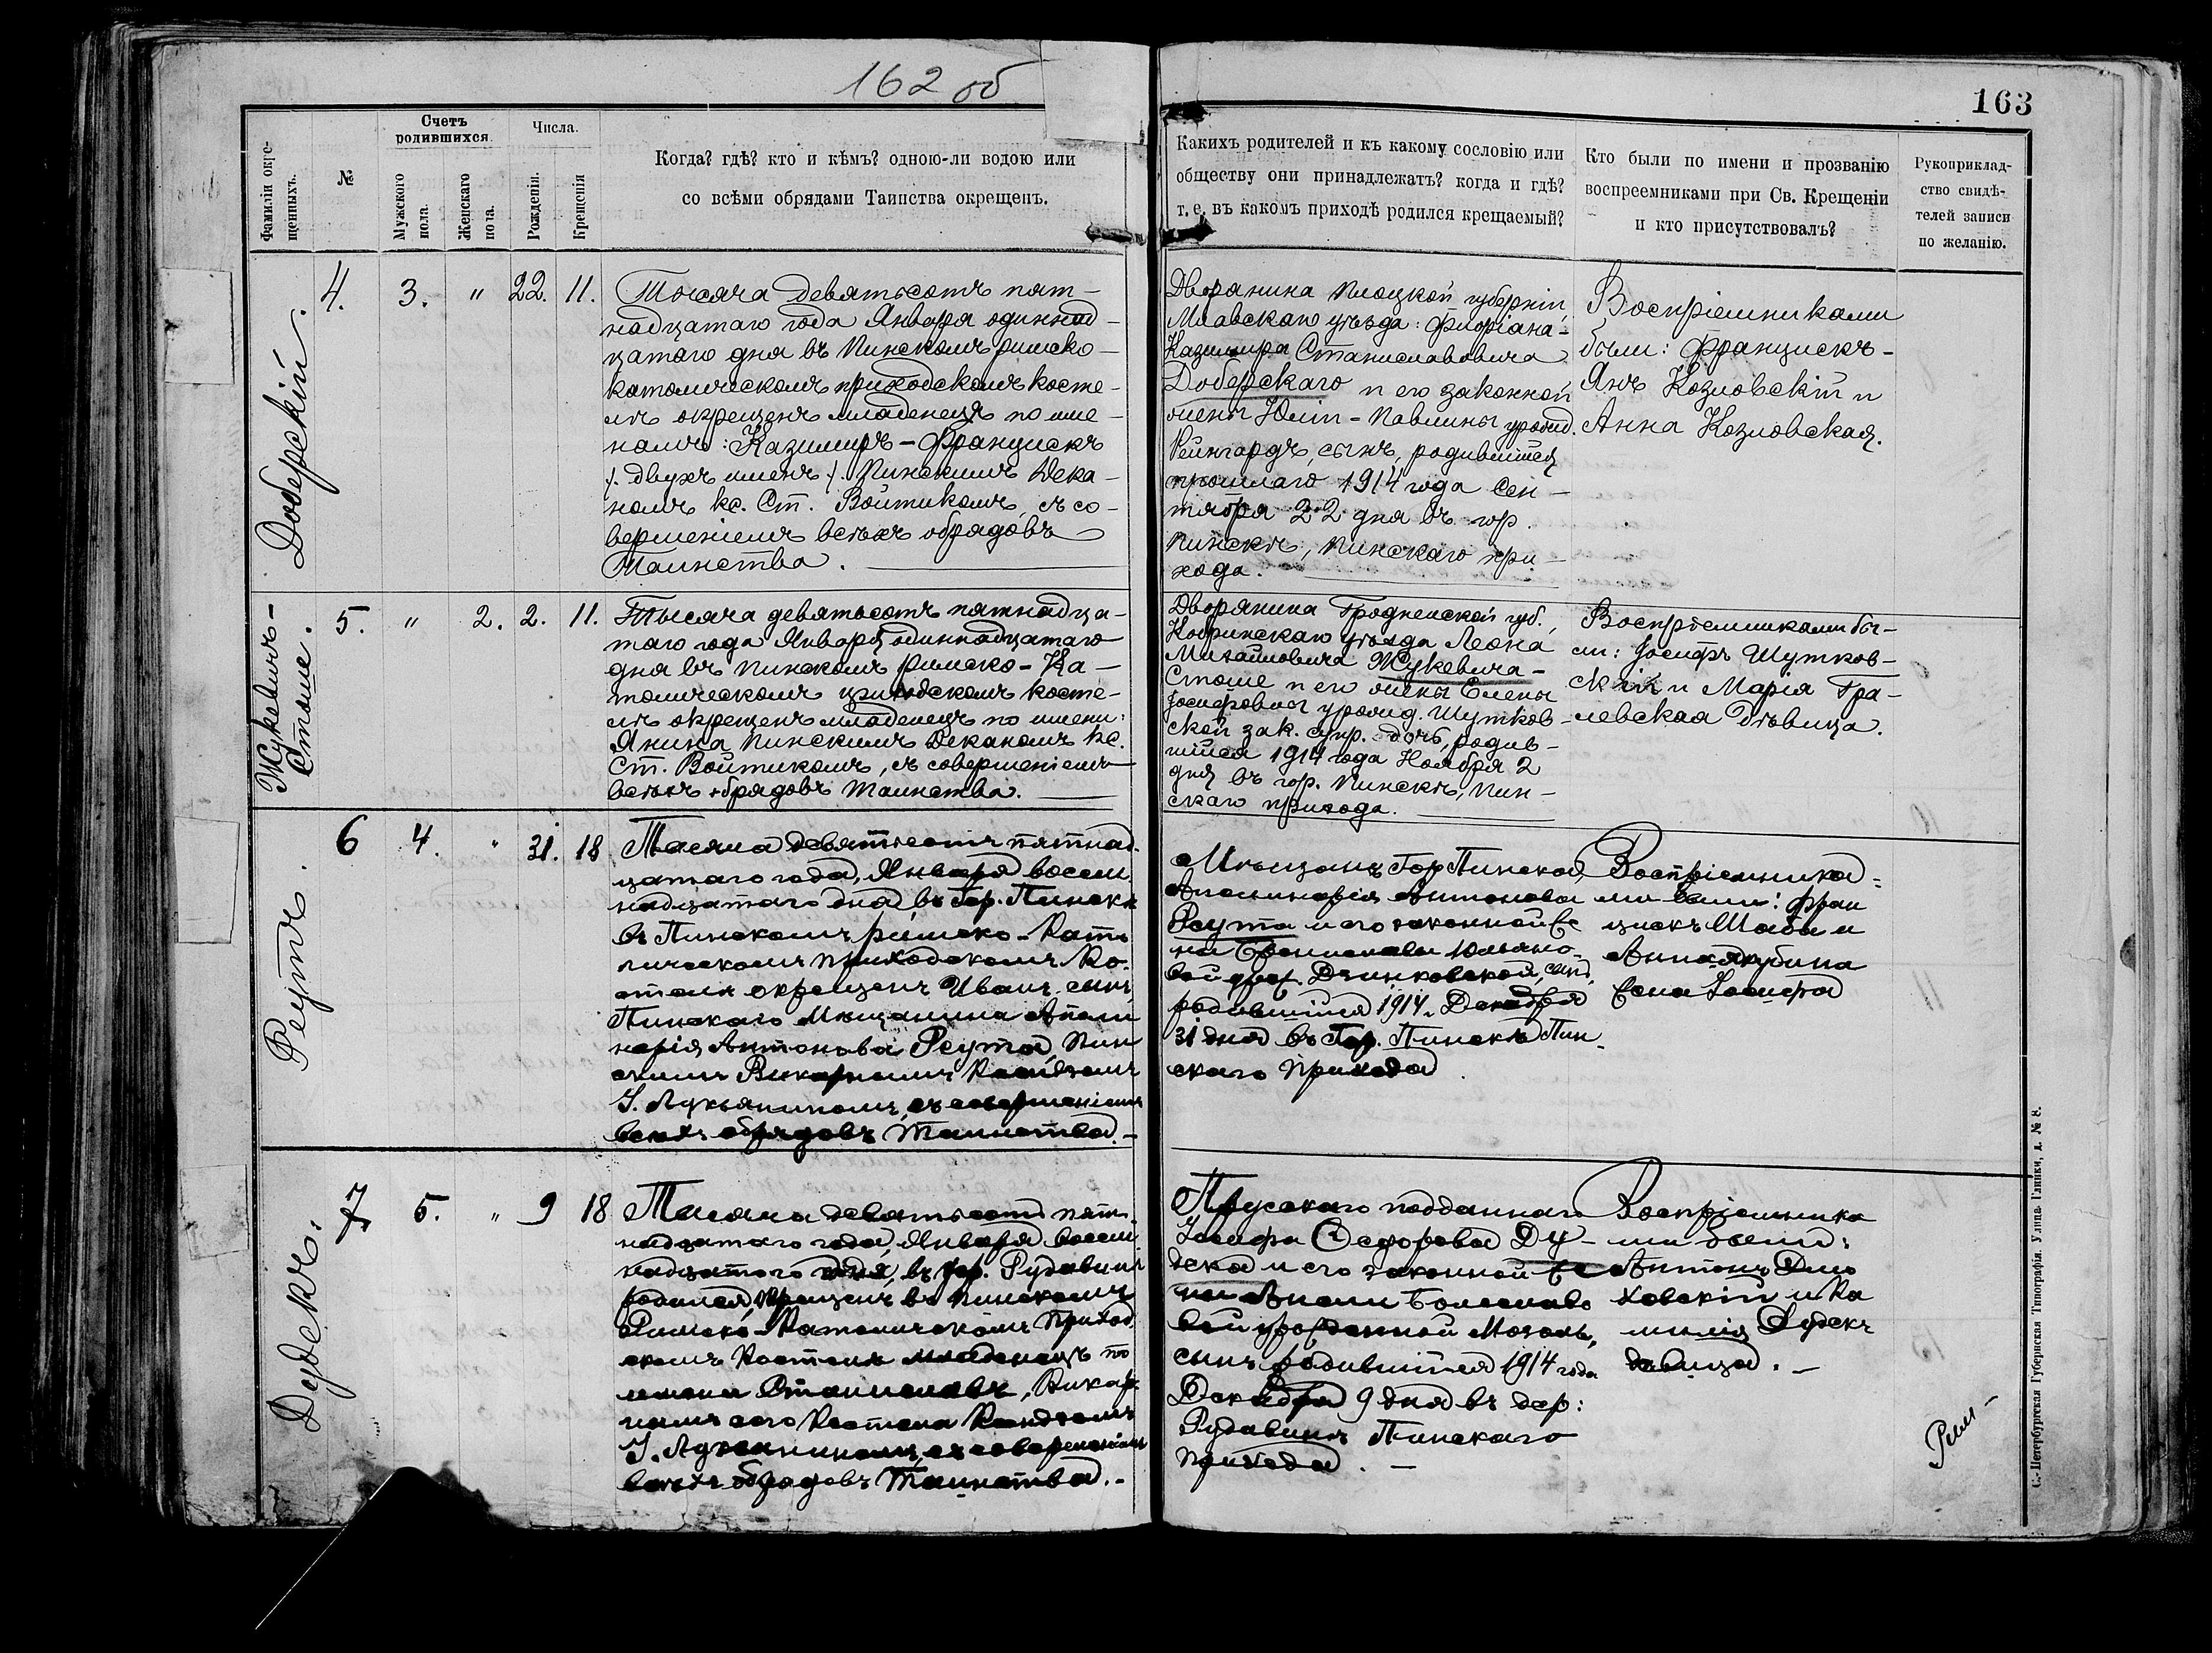 162 об
163
Фамиліи окре-
щенныхъ.
№
Счетъ
родившихся.
Мужского
пола.
Женскаго
пола.
Числа.
Рожденія.
Крещенія
Когда? гдѣ? кто и кѣмъ? одною-ли водою или
со всѣми обрядами Таинства окрещенъ.
Какихъ родителей и къ какому сословію или
обществу они принадлежатъ? когда и гдѣ?
т. е. въ какомъ приходѣ родился крещаемый?
Кто были по имени и прозванію
воспреемниками при Св. Крещеніи
и кто присутствовалъ?
Рукоприклад-
ство свидѣ-
телей записи
по желанію.
Доберскій.
4. 3. " 22. 11.
Тысяча девятьсотъ пят-
надцатаго года Января одиннад-
цатаго дня въ Пинскомъ римско-
католическомъ приходскомъ косте-
лѣ окрещенъ младенецъ по име-
намъ: Казимиръ-Францискъ
/. двухъ именъ ./. Пинскимъ Дека-
номъ кс. Ст. Войтикомъ, съ со-
вершеніемъ всѣхъ обрядовъ
Таинства.
Дворянина Плоцкой губерніи,
Млавскаго уѣзда: Флоріана-
Казимира Станиславовича
Доберскаго и его законной
жены Юліи-Павлины урожд.
Рейнгардъ, сынъ, родившійся
прошлаго 1914 года Сен-
тября 22 дня въ гор.
Пинскѣ, Пинскаго при-
хода.
Воспріемниками
были: Францискъ-
Янъ Козловскій и
Анна Козловская.
Жукевичъ-
Стоше.
5. " 2. 2. 11.
Тысяча девятьсотъ пятнадца-
таго года Января одиннадцатаго
дня въ Пинскомъ римско-Ка-
толическомъ приходскомъ косте-
лѣ окрещенъ младенецъ по имени:
Янина Пинскимъ Деканомъ Кс.
Ст. Войтикомъ, съ совершеніемъ
всѣхъ обрядовъ Таинства.
Дворянина Гродненской губ.,
Кобринскаго уѣзда Леона
Михайловича Жукевича-
Стоше и его жены Елены
Іосифовны урожд. Шутков-
ской зак. супр. дочь, родив-
шійся 1914 года Ноября 2
дня въ гор. Пинскѣ, Пин-
скаго прихода.
Воспріемниками бы-
ли: Іосифъ Шутков-
скій и Марія Гра-
левская дѣвица.
Реутъ.
6 4. " 31. 18
Тысяча девятьсотъ пятнад.
цатаго года, Января восем
надцатаго дня, въ Гор. Пинскѣ
въ Пинскомъ римско-Като
лическомъ приходскомъ Ко-
стелѣ окрещенъ Иванъ сынъ,
Пинскаго Мѣщанина Аполи
нарія Антонова Реута, Пин
скимъ Викарнымъ Ксендзомъ
І. Лукьяникомъ, съ совершеніемъ
всѣхъ обрядовъ Таинства.-
Мѣщанъ Гор Пинска,
Аполинарія Антонова
Реута и его законной же
ны Брониславы Юльяно-
вой урож. Дзинковской, сынъ,
родившійся 1914. Декабря
31 дня въ Гор. Пинскѣ Пин-
скаго Прихода.
Воспріемника-
ми были: Фран
цискъ Шабы и
Анна Якубина
жена Іосифа
Дудекъ.
7 5. " 9 18
Тысяча девятьсотъ пятн-
надцатаго года, Января восем
надцатаго дня, въ дер. Рудавинѣ
родился, крещенъ въ Пинскомъ
Римско-Католическомъ Приход
скомъ Костелѣ младенецъ по
имени Станиславъ, Викар
нымъ сего Костела Ксендзомъ
І. Лукьяникомъ, съ совершеніемъ
всѣхъ обрядовъ Таинства.-
Прусскаго подданнаго
Іосифа Федорова Ду-
дека и его законной же
ны Анели Болеславо
вой урожденной Мозоль,
сынъ родившійся 1914 года
Декабря 9 дня въ дер:
Рудавинѣ Пинскаго
Прихода.-
Воспріемника
ми были:
Антонъ
ховскій и Ка
милія Дудекъ
дѣвица.-
С.-Петербургская Губернская Типографія. Улица Глинки, д. № 8.